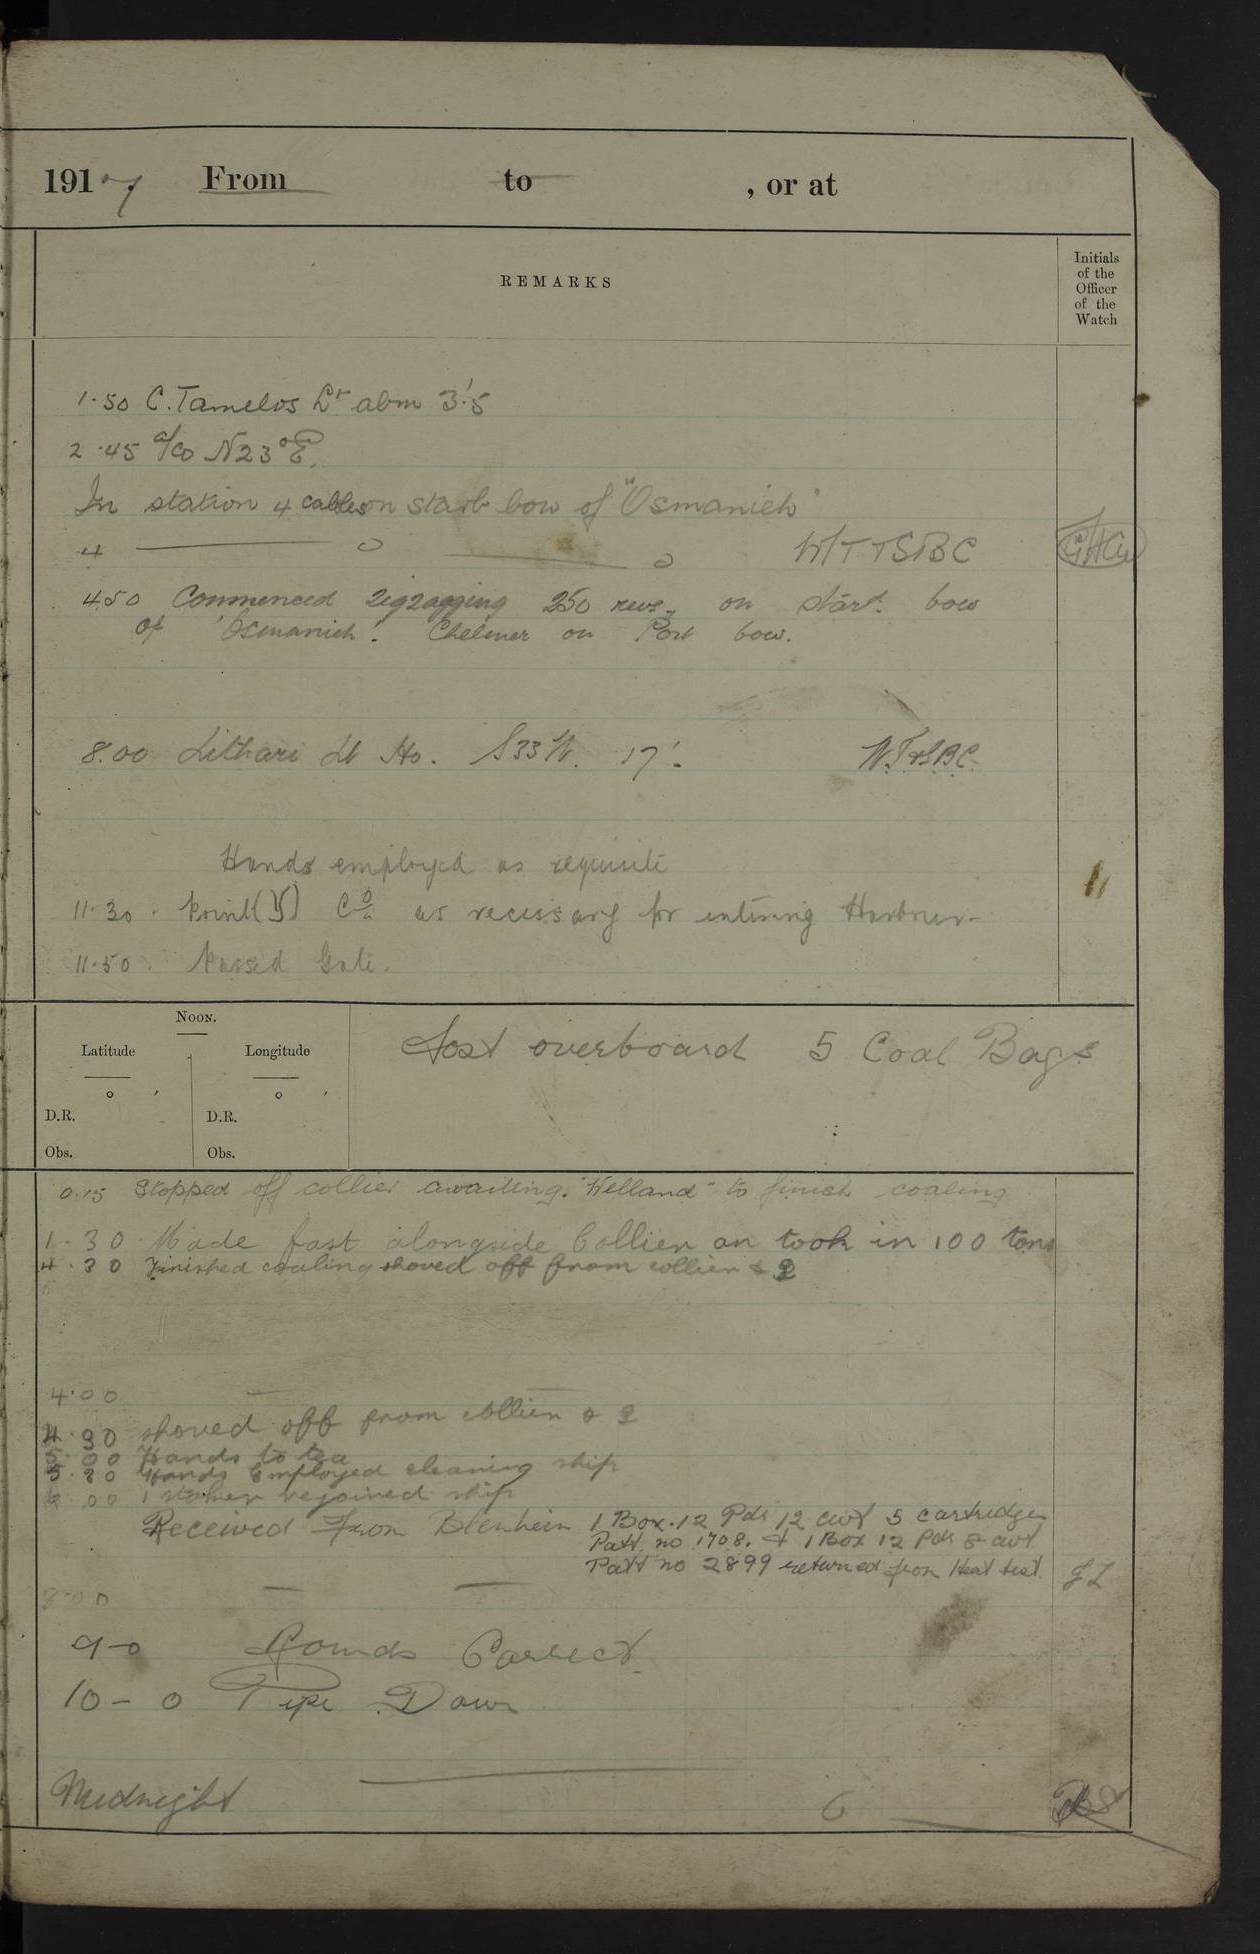 1917 From to , or at
REMARKS
Initials of the Officer of the Watch
1.50 C. Tamelos Lt abm 3'.5
2.45 a/co N23°E.
In station 4 cables on starb bow of "Osmanieh"
4
4.50 Commenced zigzagging 250 revs. on starb. bow
of 'Osmanieh'. Chelmer on Port bow.
8.00 Lithari Lt Ho. S33W. 17'.
Hands employed as requisite
11.30 Co as necessary for entering Harbour
11.50 Passed Gate.
NOON.
Latitude Longitude
D.R. D.R.
Obs. Obs.
Lost overboard 5 Coal Bags
0.15 Stopped off collier awaiting "Welland" to finish coaling
1-30 Made fast alongside Collier an took in 100 tons
4.30 Finished coaling shoved off from collier &
4.00
4.30 shoved off from collier &
5.00 Hands to tea
5.20 Hands Employed cleaning ship
6.00 1 stoker rejoined ship
Received From Blenheim 1 Box. 12 Pdr 12 cwt 5 cartridges
Patt. no 1708. & 1 Box 12 Pdr 8 cwt
Patt no 2899 returned from Heat test
8.00
9-0 Rounds Correct
10-0 Pipe Down
Midnight